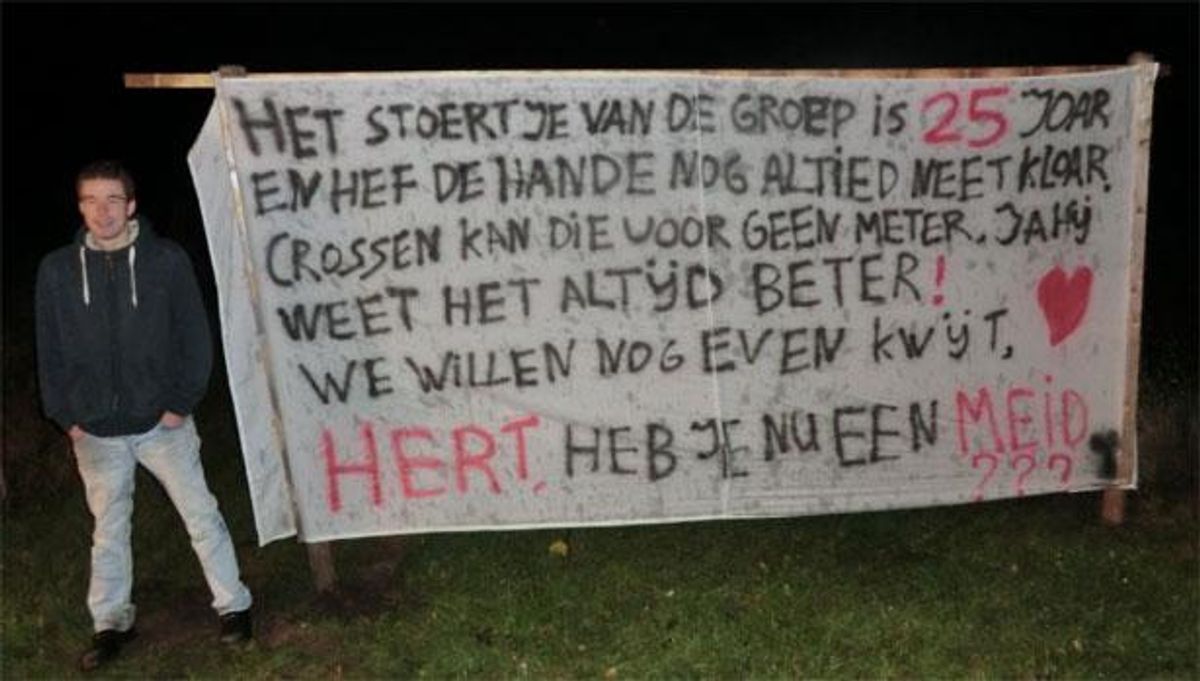 HET STOERTJE VAN DE GROEP is 25 JOAR
EN HEF DE HANDE NOG ALTiED NEET KLOAR.
CROSSEN KAN DiE VOOR GEEN METER. JA Hij
WEET HET ALTijD BETER!
WE WiLLEN NOG EVEN KWijT,
HERT, HEB JE NU EEN MEiD
???